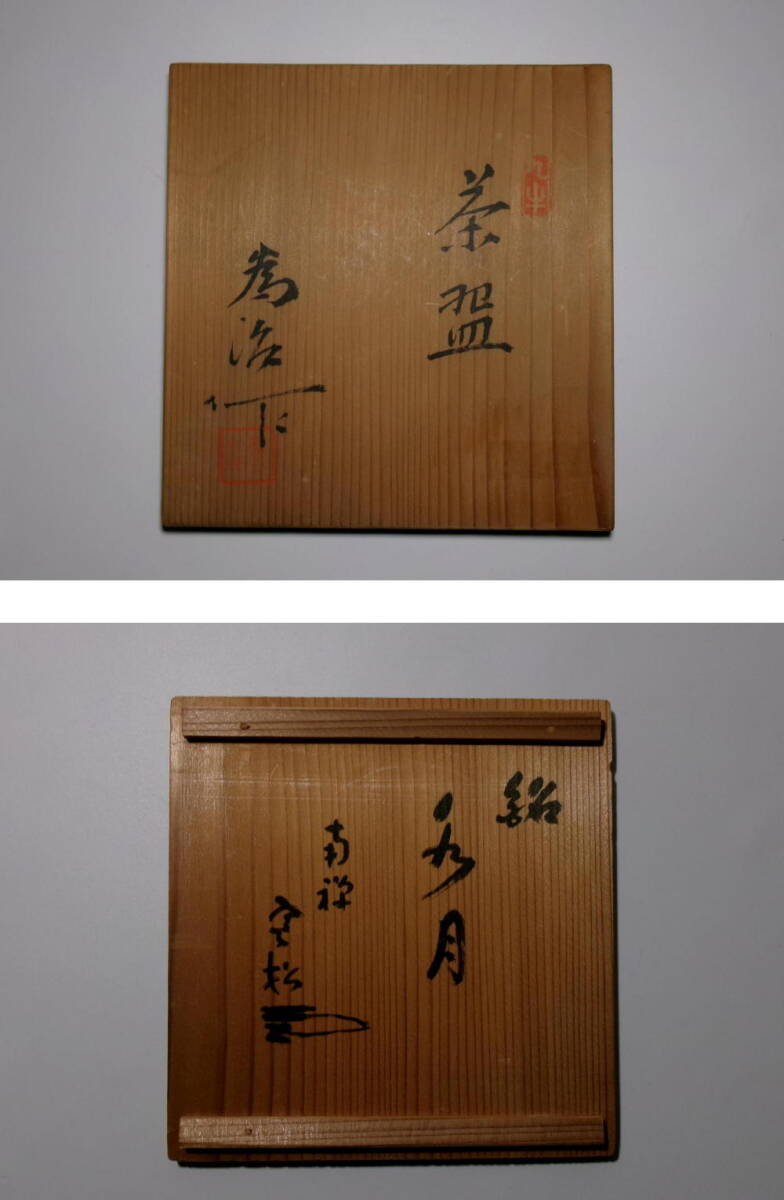 茶盌
為治作
銘
秀月
南禅
寒松